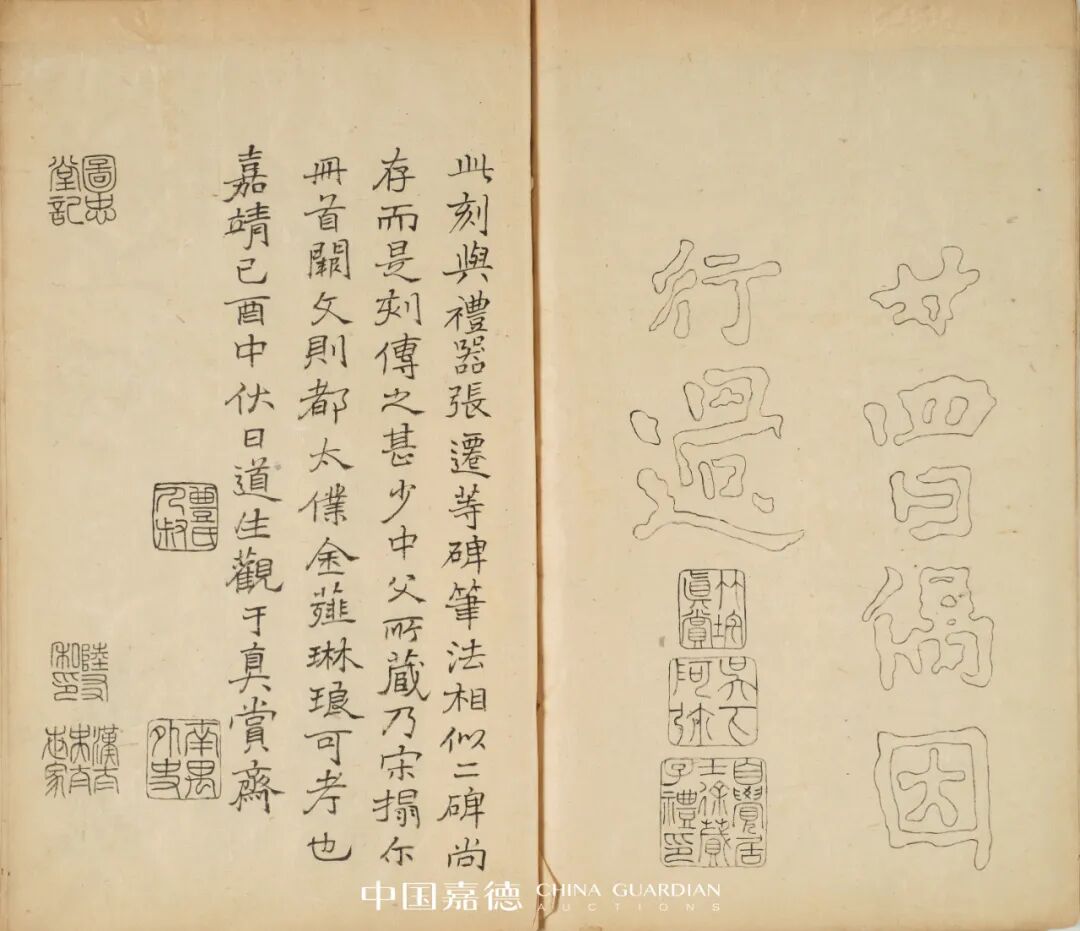 廿四日偶因
行過
竹垞真賞
自覺居士徐蕡子禮印
此刻與禮器張遷等碑筆法相似二碑尚
存而是刻傳之甚少中父所蔵乃宋搨尓
冊首闕文則都太僕金薤琳琅可考也
嘉靖己酉中伏日道生觀于真賞齋
豐氏人叔
南禺外史
圖忠堂記
中国嘉德 CHINA GUARDIAN
AUCTIONS